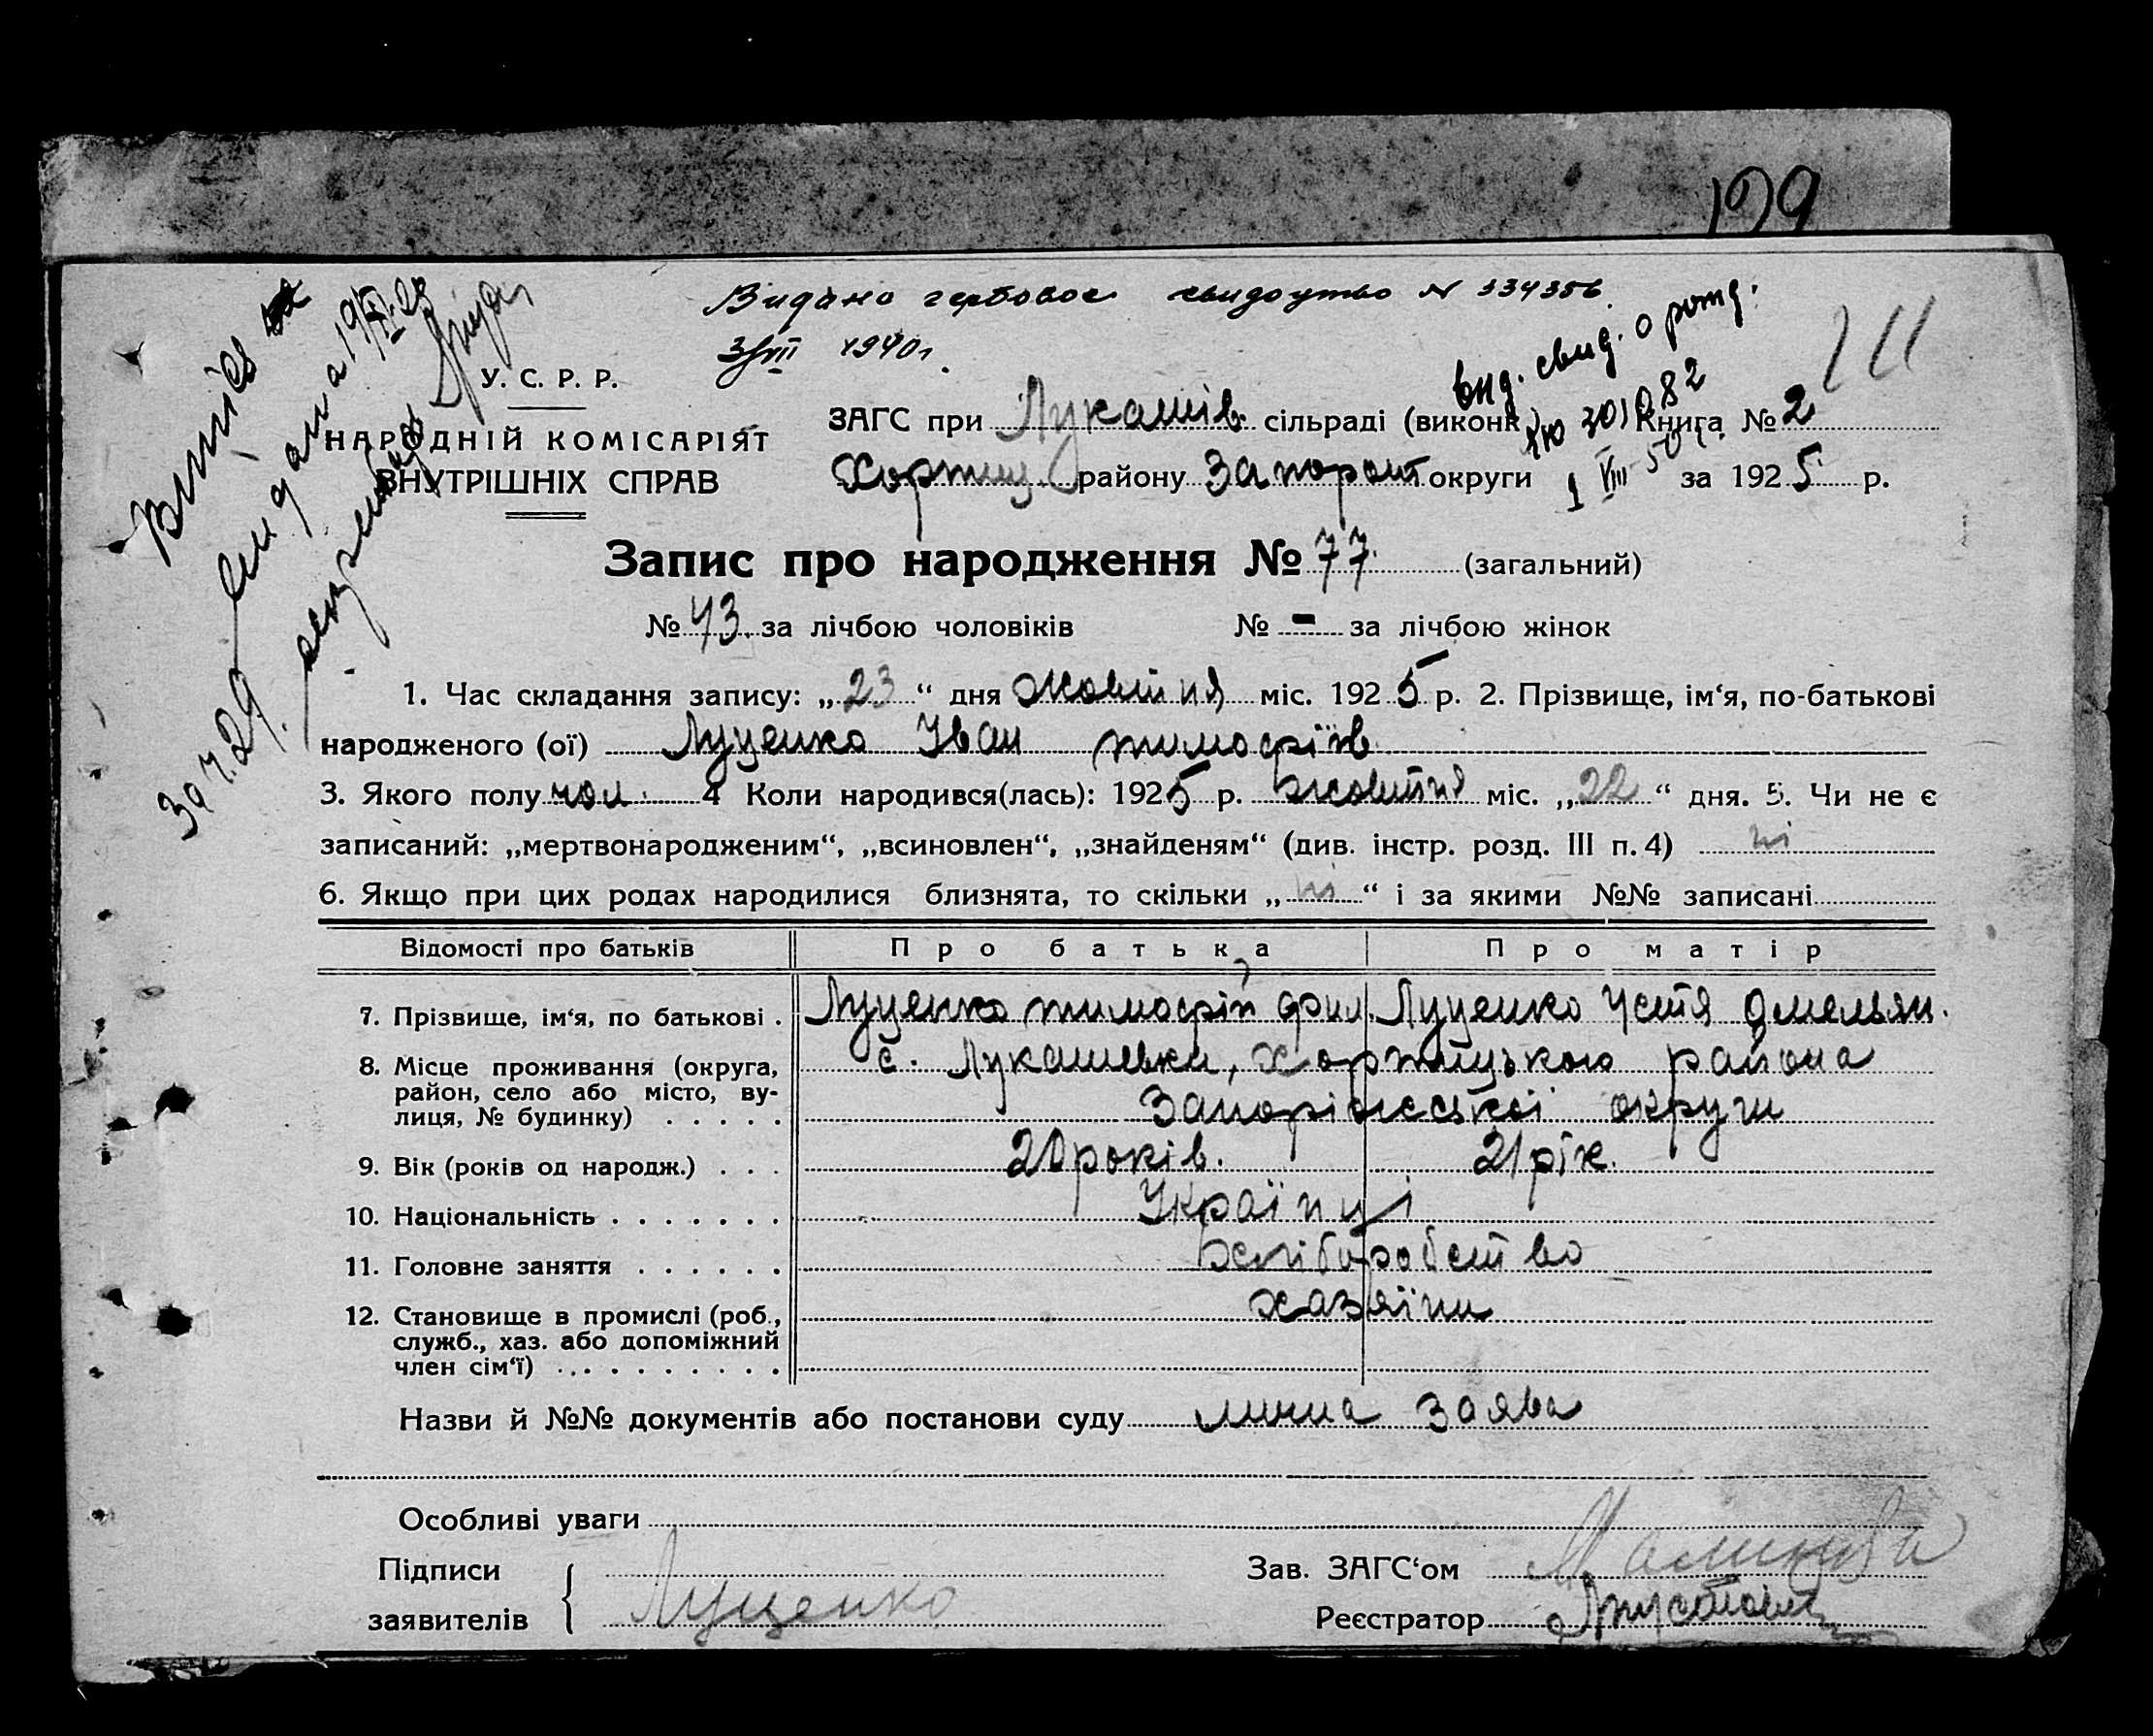 199
Видано гербовое свидоцтво N 334356
3/VII 1940 г.
вид. свид. о рожд.
111
301082
1 VIII 50 г.
Випис
видана 19/XI-28
За ч. 29.
У. С. Р. Р.
НАРОДНІЙ КОМІСАРІЯТ
ВНУТРІШНІХ СПРАВ
ЗАГС при Лукашів. сільраді (виконк.) Книга № 2
Хортиц району Запорож округи за 1925 р.
Запис про народження № 77. (загальний)
№ 43. за лічбою чоловіків № - за лічбою жінок
1. Час складання запису: „23“ дня жовтня міс. 1925 р. 2. Прізвище, ім‘я, по-батькові
народженого (ої) Луценко Іван тимофіїв
3. Якого полу чол. 4 Коли народився(лась): 1925 р. жовтня міс. „22“ дня. 5. Чи не є
записаний: „мертвонародженим“, „всиновлен“, „знайденям“ (див. інстр. розд. III п. 4) ні
6. Якщо при цих родах народилися близнята, то скільки „ні“ і за якими №№ записані
Відомості про батьків Про батька Про матір
7. Прізвище, ім‘я, по батькові . Луценко тимофій фил. Луценко Устя Омельян.
8. Місце проживання (округа, район, село або місто, вулиця, № будинку) . . . . . с. Лукашевка, Хортицького района
Запоріжської округи
9. Вік (років од народж.) . . . 20 років. 21 рік.
10. Національність . . . . . . . Українці
11. Головне заняття . . . . . . хліборобство
12. Становище в промислі (роб., служб., хаз. або допоміжний член сім‘ї) . . . . . . . . . . хазяїни
Назви й №№ документів або постанови суду лична заява
Особливі уваги
Підписи
заявителів Луценко
Зав. ЗАГС‘ом
Реєстратор